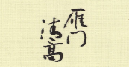 雁门
清高